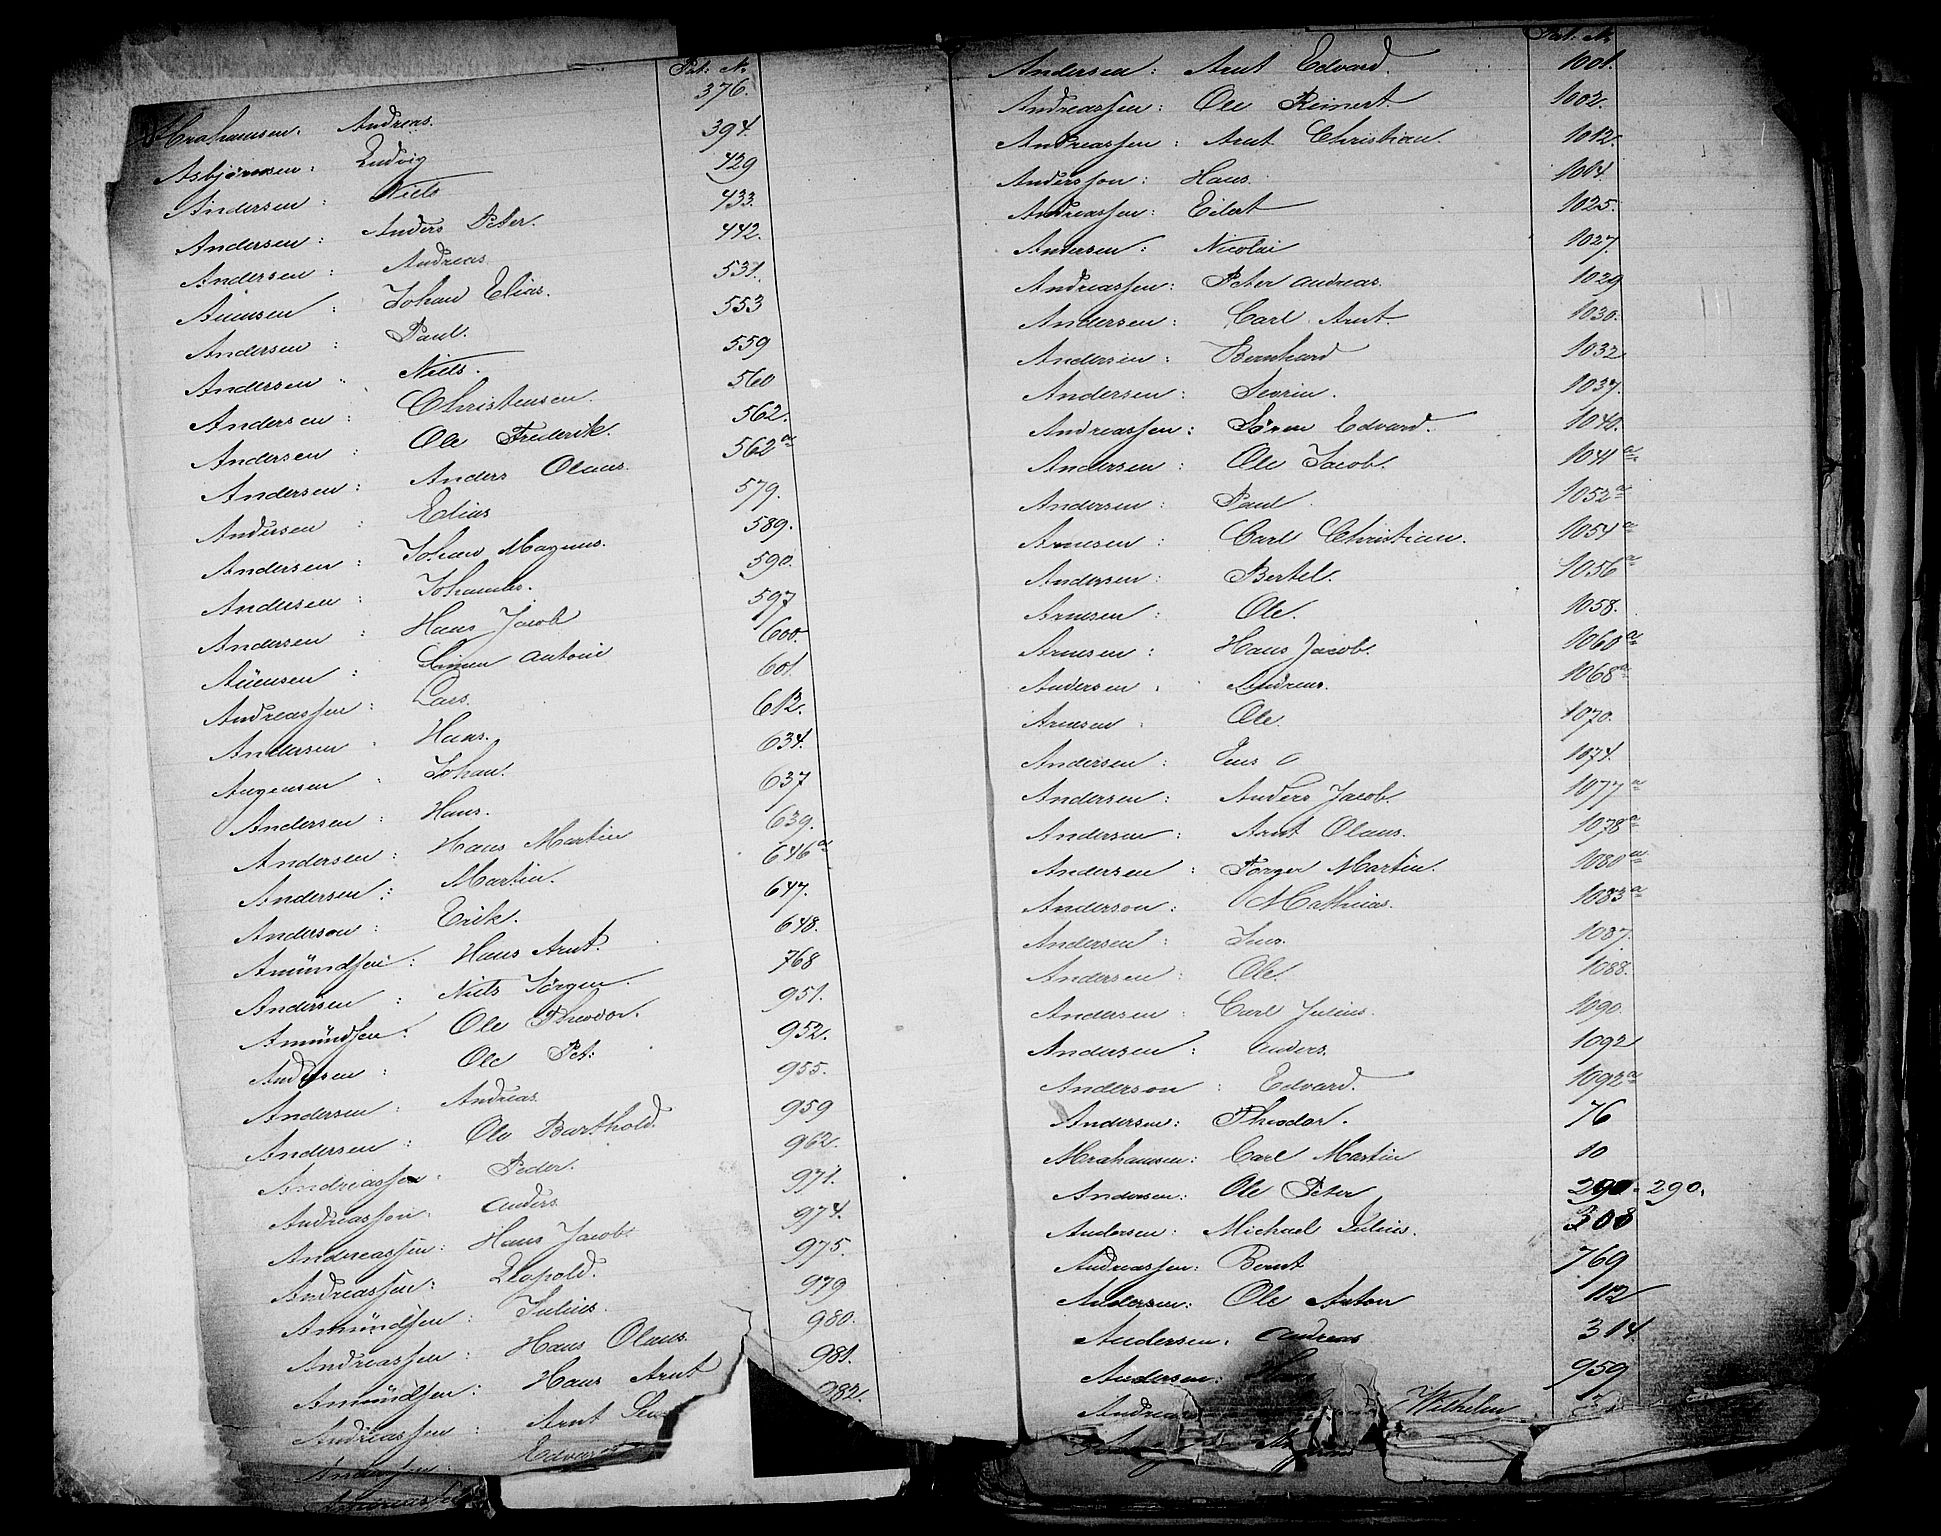 Pat. N.
Abrahamsen. Andreas. 376.
Asbjørnsen : Ludvig 394.
Andersen : Niels 429
Andersen : Anders Peter. 433.
Andersen : Andreas 442.
Auensen : Johan Elias. 531.
Andersen : Paul. 553
Andersen : Niels. 559
Andersen : Christensen. 560
Andersen : Ole Frederik. 562.
Andersen : Anders Olaus. 562 a
Andersen : Elias 579.
Andersen : Johan Magnus. 589.
Andersen : Johannes. 590.
Andersen : Hans Jacob 597
Auensen : Simen Antoni 600.
Andreassen : Lars. 601.
Andersen : Hans. 612.
Augensen : Johan. 634.
Andersen : Hans. 637
Andersen : Hans Martin 639.
Andersen : Martin. 646 a
Anderson : Erik. 647.
Amündsen : Hans Arnt. 648.
Andersen : Niels Jørgen. 768
Amündsen : Ole Theodor. 951.
Andersen : Ole Pet: 952.
Andersen : Andreas 955.
Andersen : Ole Barthold. 959
Andreassen. Peder. 962.
Andreasson. Anders 971.
Andreassen : Hans Jacob. 974.
Andreassen : Leopold. 975.
Amündsen : Julius. 979
Andreassen : Hans Olaus 980.
Amündsen : Hans Arnt 981.
Andreassen : Arnt 982.
Andersen : Edvard
Pat. N.
Andersen : Arnt Edvard. 1001.
Andreassen : Ole Reinert 1002.
Andreassen : Arnt Christian. 1012.
Andersson : Hans. 1014.
Andreassen : Eilert 1025.
Andersen : Nicolai 1027.
Andreassen : Peter Andreas. 1029
Andersen : Carl Arnt. 1030.
Andersen : Bernhard 1032
Andersen : Sevrin. 1037.
Andreassen : Søren Edvard. 1040.
Andersen : Ole Jacob. 1041 a
Andersen : Paul 1052 a
Arnesen : Carl Christian. 1054 a
Andersen : Bertel. 1056 a
Arnesen : Ole. 1058.
Arnesen : Hans Jacob. 1060 a
Andersen : Andreas. 1068 a
Arnesen : Ole. 1070.
Andersen : Jens O 1074.
Andersen : Anders Jacob. 1077 a
Andersen : Arnt Olaus. 1078 a
Andersen : Torger Martin. 1081 a
Anderson : Mathias. 1083 a
Andersen : Jens. 1087.
Andersen : Ole. 1088.
Andersen : Carl Julius. 1090.
Andersen : Anders. 1092
Anderson : Edvard. 1092 a
Andersen : Theodor. 76
Abrahamsen : Carl Martin 10
Andersen : Ole Peter 290. 290.
Andersen : Michael Julius. 308
Andreassen : Bernt 769
Andersen : Ole Anton 112
Andersen : Andreas 314.
Andersen : Hans 959
Wilhelm